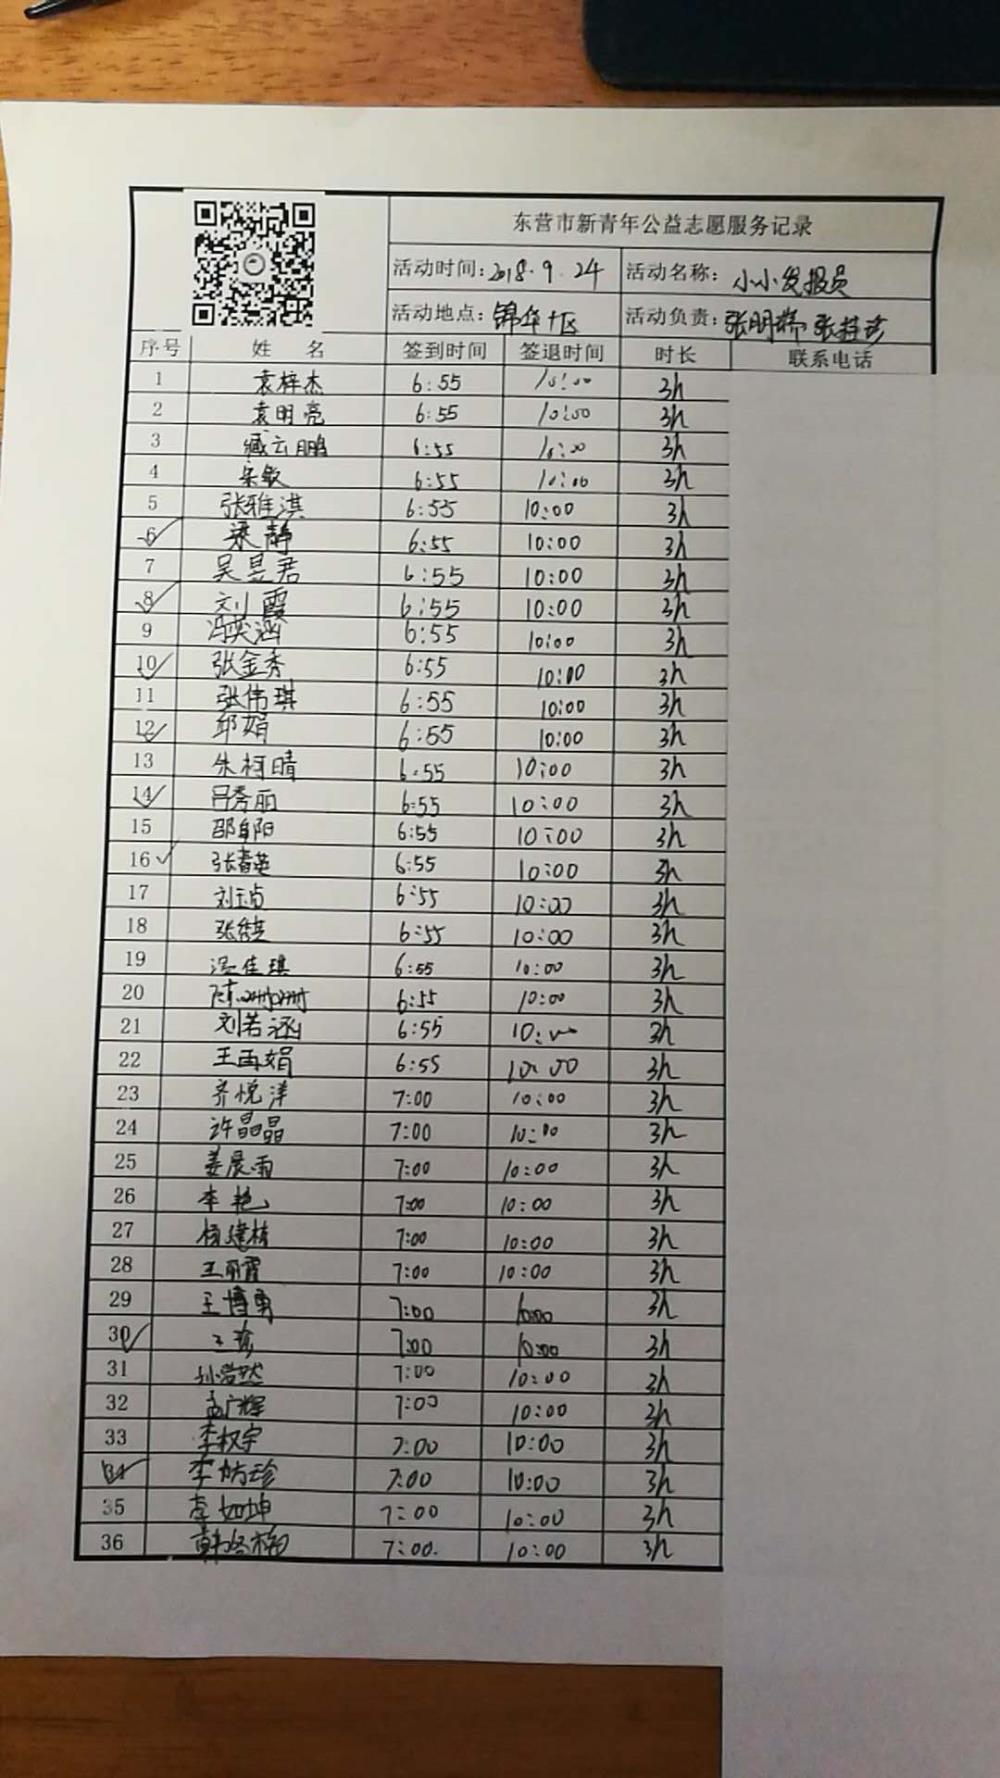 东营市新青年公益志愿服务记录
活动时间：2018.9.24 活动名称：小小发报员
活动地点：锦华十区 活动负责：张明
序号 姓名 签到时间 签退时间 时长 联系电话
1 袁梓杰 6:55 10:00 3h
2 袁明亮 6:55 10:00 3h
3 臧云鹏 6:55 10:00 3h
4 朱敏 6:55 10:00 3h
5 张雅淇 6:55 10:00 3h
6 梁静 6:55 10:00 3h
7 吴昱君 6:55 10:00 3h
8 刘霞 6:55 10:00 3h
9 冯奕涵 6:55 10:00 3h
10 张金秀 6:55 10:00 3h
11 张伟琪 6:55 10:00 3h
12 邱娟 6:55 10:00 3h
13 朱柯晴 6:55 10:00 3h
14 吕秀丽 6:55 10:00 3h
15 邵卓阳 6:55 10:00 3h
16 张春英 6:55 10:00 3h
17 刘玉贞 6:55 10:00 3h
18 6:55 10:00 3h
19 温佳琪 6:55 10:00 3h
20 陈姗姗 6:55 10:00 3h
21 刘若涵 6:55 10:00 3h
22 王再娟 6:55 10:00 3h
23 齐悦洋 7:00 10:00 3h
24 许晶晶 7:00 10:00 3h
25 姜晨雨 7:00 10:00 3h
26 李艳 7:00 10:00 3h
27 杨建梅 7:00 10:00 3h
28 王丽霞 7:00 10:00 3h
29 王博勇 7:00 10:00 3h
30 王珍 7:00 10:00 3h
31 孙浩然 7:00 10:00 3h
32 孟广辉 7:00 10:00 3h
33 李权宇 7:00 10:00 3h
34 7:00 10:00 3h
35 李如坤 7:00 10:00 3h
36 7:00. 10:00 3h